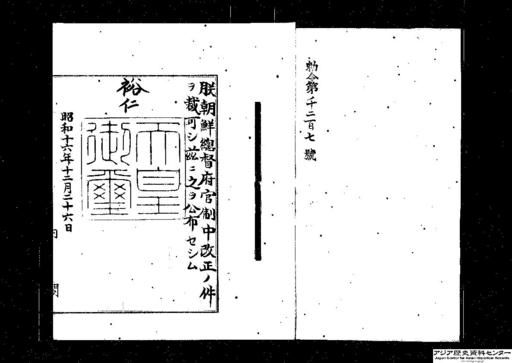 勅令第千二百七號
朕朝鮮總督府官制中改正ノ件
ヲ裁可シ茲ニ之ヲ公布セシム
裕仁
天皇
御璽
昭和十六年十二月二十六日
内閣
アジア歴史資料センター
Japan Center for Asian Historical Records